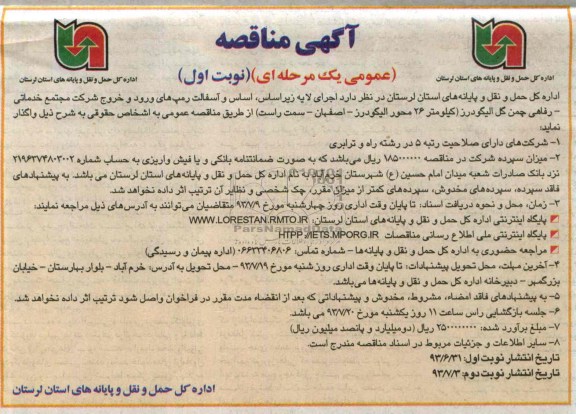 آگهی مناقصه
(عمومی یک مرحله ای) (نوبت اول)
اداره کل حمل و نقل و پایانه های استان لرستان
اداره کل حمل و نقل و پایانه های استان لرستان
اداره کل حمل و نقل و پایانه‌های استان لرستان در نظر دارد اجرای لایه زیراساس، اساس و آسفالت رمپ‌های ورود و خروج شرکت مجتمع خدماتی
– رفاهی چمن گل الیگودرز (کیلومتر ۲۶ محور الیگودرز – اصفهان – سمت راست) از طریق مناقصه عمومی به اشخاص حقوقی به شرح ذیل واگذار
نماید:
۱– شرکت‌های دارای صلاحیت رتبه ۵ در رشته راه و ترابری
۲– میزان سپرده شرکت در مناقصه ۱۸۵۰۰۰۰۰۰ ریال می‌باشد که به صورت ضمانتنامه بانکی و یا فیش واریزی به حساب شماره ۲۱۹۶۳۷۴۸۰۳۰۰۲
نزد بانک صادرات شعبه میدان امام حسین (ع) شهرستان به نام اداره کل حمل و نقل و پایانه‌های استان لرستان می باشد. به پیشنهادهای
فاقد سپرده، سپرده‌های مخدوش، سپرده‌های کمتر از میزان مقرر، چک شخصی و نظایر آن ترتیب اثر داده نخواهد شد.
۳– زمان، محل و نحوه دریافت اسناد: تا پایان وقت اداری روز چهارشنبه مورخ ۹۳/۷/۹ متقاضیان می‌توانند به آدرس‌های ذیل مراجعه نمایند:
پایگاه اینترنتی اداره کل حمل و نقل و پایانه‌های استان لرستان: WWW.LORESTAN.RMTO.IR
پایگاه اینترنتی ملی اطلاع رسانی مناقصات HTPP://IETS.MPORG.IR
مراجعه حضوری به اداره کل حمل و نقل و پایانه‌ها – شماره تماس: ۰۶۶۳۳۴۰۶۸۰۶ (اداره پیمان و رسیدگی)
۴– آخرین مهلت، محل تحویل پیشنهادات: تا پایان وقت اداری روز شنبه مورخ ۹۳/۷/۱۹ – محل تحویل به آدرس: خرم آباد – بلوار بهارستان – خیابان
بزرگمهر – دبیرخانه اداره کل حمل و نقل و پایانه‌ها می‌باشد.
۵– به پیشنهادهای فاقد امضاء، مشروط، مخدوش و پیشنهاداتی که بعد از انقضاء مدت مقرر در فراخوان واصل شود ترتیب اثر داده نخواهد شد.
۶– جلسه بازگشایی راس ساعت ۱۱ روز یکشنبه مورخ ۹۳/۷/۲۰ می باشد.
۷– مبلغ برآورد شده: ۲۵۰۰۰۰۰۰۰۰ ریال (دومیلیارد و پانصد میلیون ریال)
۸– سایر اطلاعات و جزئیات مربوط در اسناد مناقصه مندرج است.
تاریخ انتشار نوبت اول: ۹۳/۶/۳۱
تاریخ انتشار نوبت دوم: ۹۳/۷/۳
اداره کل حمل و نقل و پایانه های استان لرستان
ParsNamadData